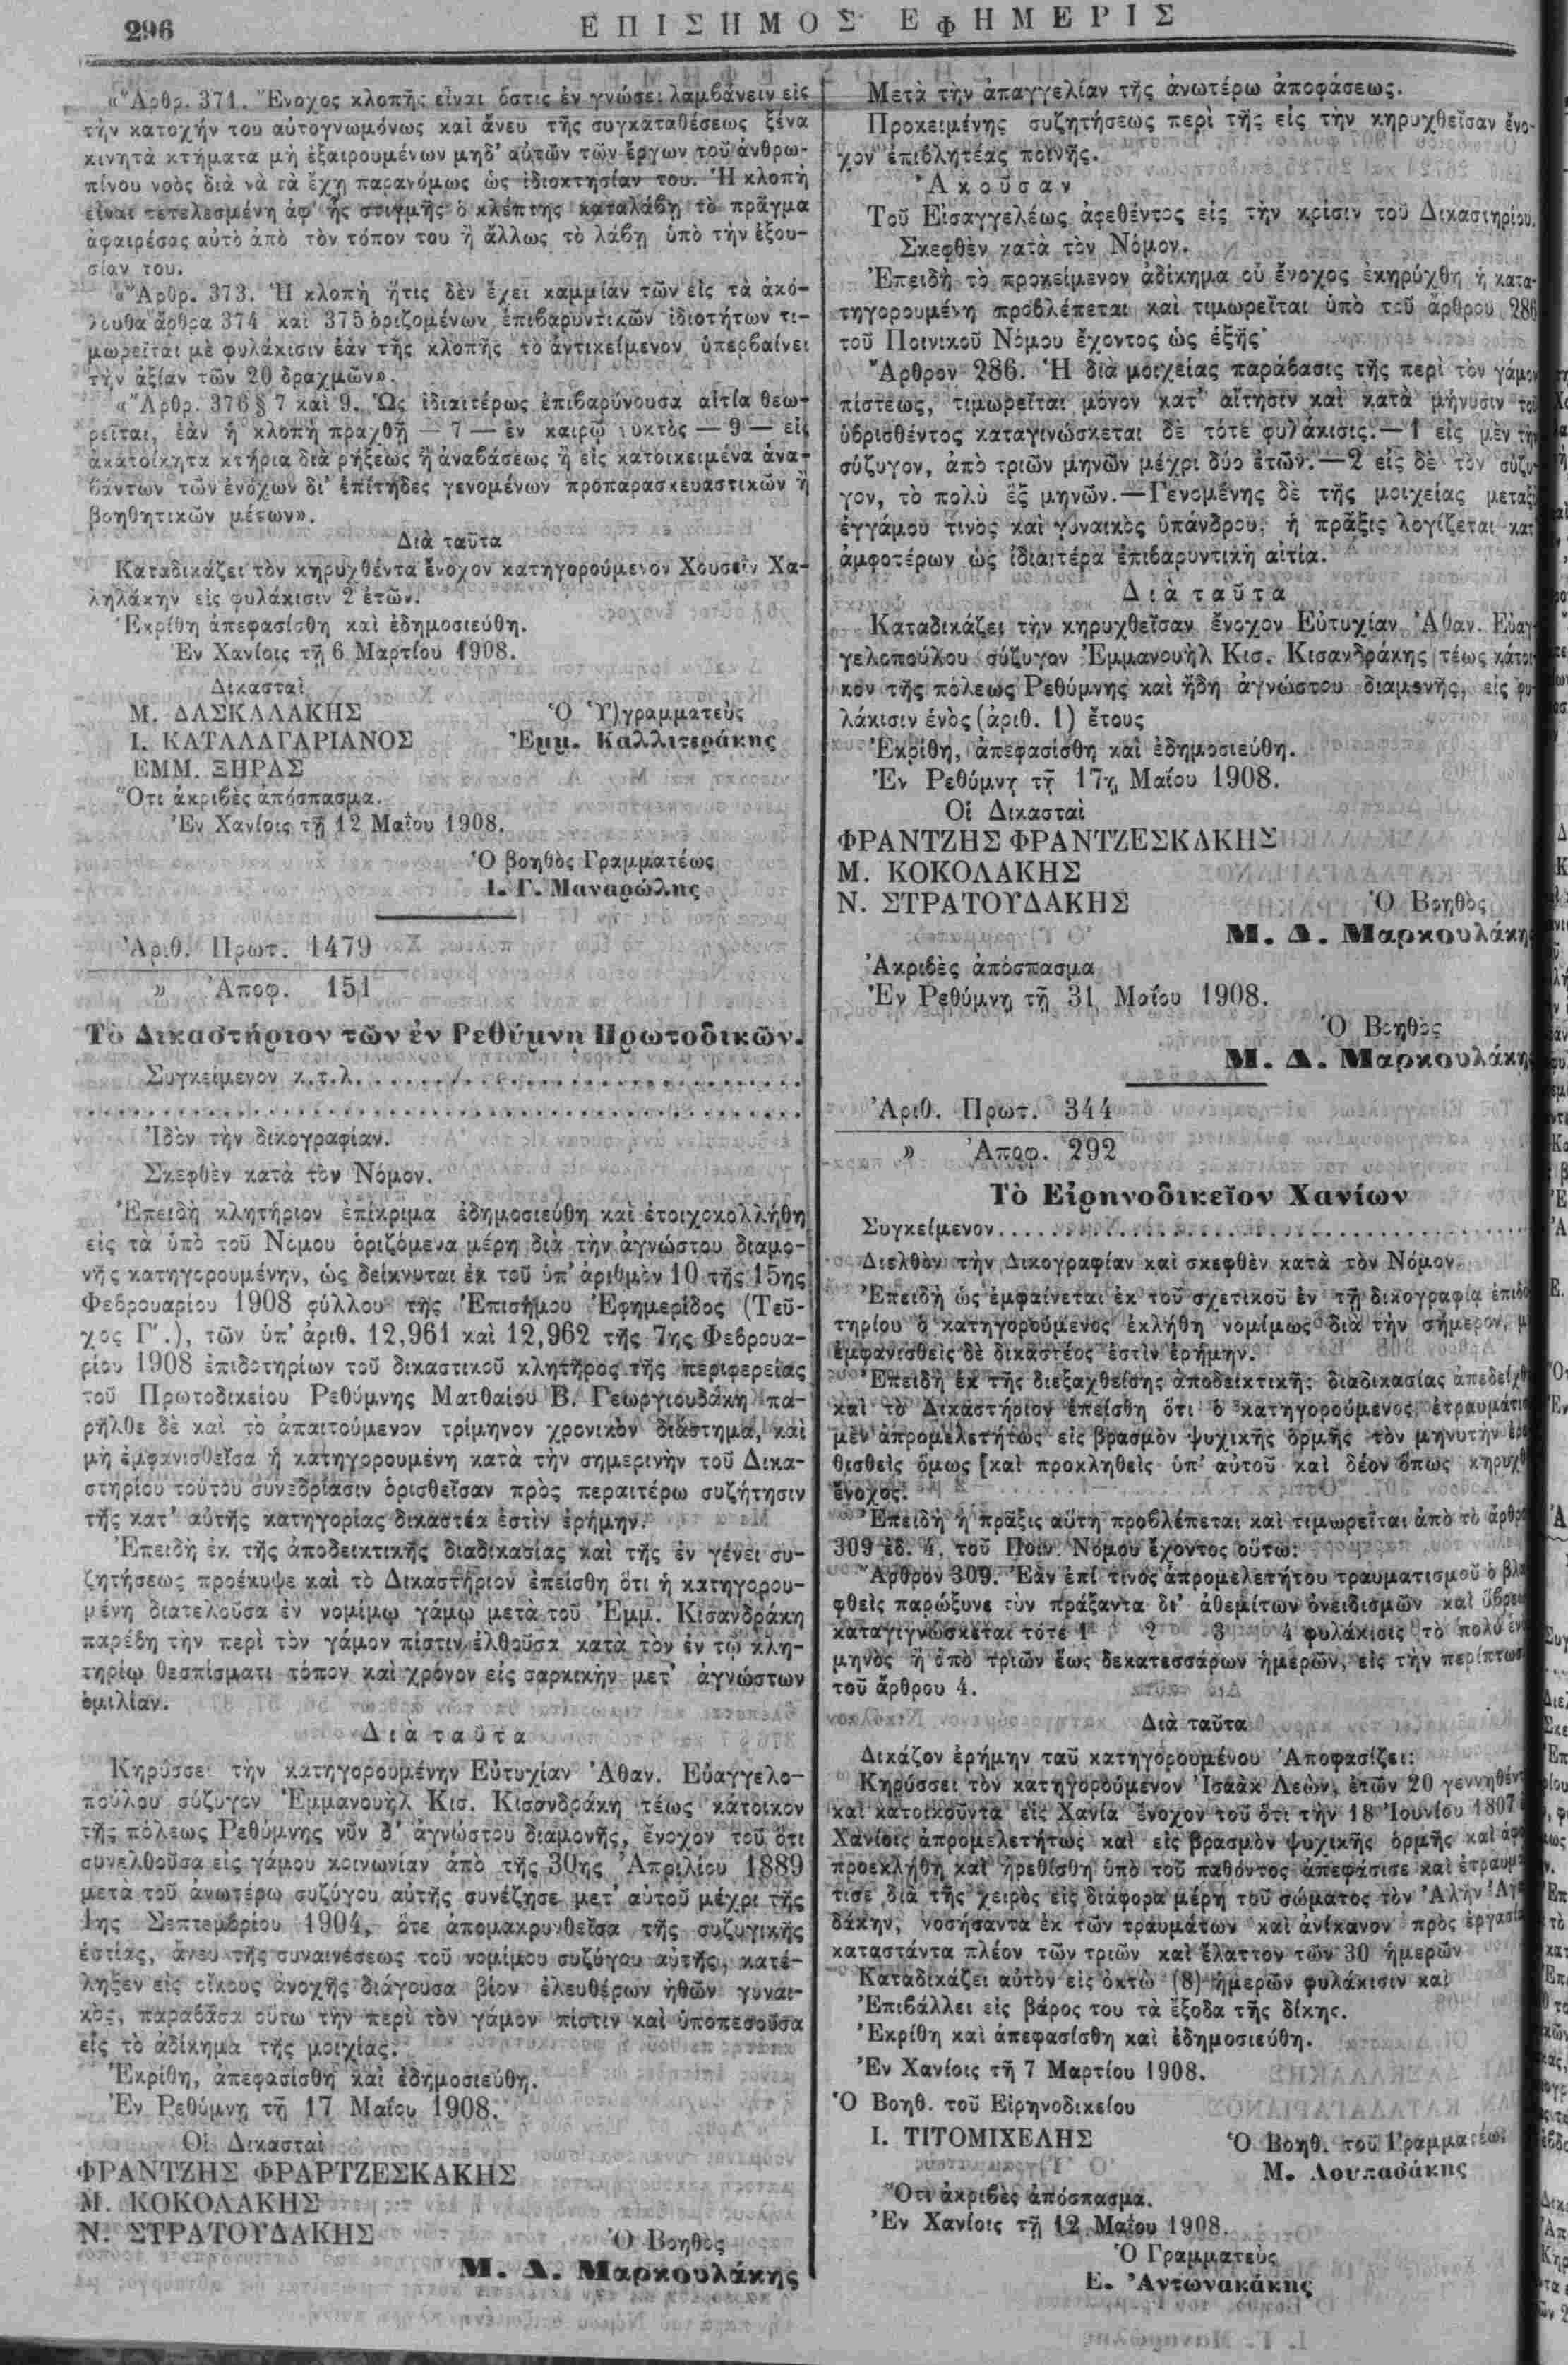 296
ΕΠΙΣΗΜΟΣ ΕΦΗΜΕΡΙΣ
«Ἄρθρ. 371. Ἔνοχος κλοπῆς εἶναι ὅστις ἐν γνώσει λαμβάνειν εἰς
τὴν κατοχήν του αὐτογνωμόνως καὶ ἄνευ τῆς συγκαταθέσεως ξένα
κινητὰ κτήματα μὴ ἐξαιρουμένων μηδ' αὐτῶν τῶν ἔργων τοῦ ἀνθρω-
πίνου νοὸς διὰ νὰ τὰ ἔχῃ παρανόμως ὡς ἰδιοκτησίαν του. Ἡ κλοπὴ
εἶναι τετελεσμένη ἀφ' ἧς στιγμῆς ὁ κλέπτης καταλάβῃ τὸ πρᾶγμα
ἀφαιρέσας αὐτὸ ἀπὸ τὸν τόπον του ἢ ἄλλως τὸ λάβῃ ὑπὸ τὴν ἐξου-
σίαν του.
«Ἄρθρ. 373. Ἡ κλοπὴ ἥτις δὲν ἔχει καμμίαν τῶν εἰς τὰ ἀκό-
λουθα ἄρθρα 374 καὶ 375 ὁριζομένων ἐπιβαρυντικῶν ἰδιοτήτων τι-
μωρεῖται μὲ φυλάκισιν ἐὰν τῆς κλοπῆς τὸ ἀντικείμενον ὑπερβαίνει
τὴν ἀξίαν τῶν 20 δραχμῶν».
«Ἄρθρ. 376 § 7 καὶ 9. Ὡς ἰδιαιτέρως ἐπιβαρύνουσα αἰτία θεω-
ρεῖται, ἐὰν ἡ κλοπὴ πραχθῇ — 7 — ἐν καιρῷ νυκτὸς — 9 — εἰς
ἀκατοίκητα κτήρια διὰ ρήξεως ἢ ἀναβάσεως ἢ εἰς κατοικειμένα ἀνα-
βάντων τῶν ἐνόχων δι' ἐπίτηδες γενομένων προπαρασκευαστικῶν ἢ
βοηθητικῶν μέσων».
Διὰ ταῦτα
Καταδικάζει τὸν κηρυχθέντα ἔνοχον κατηγορούμενον Χουσεῒν Χα-
ληλάκην εἰς φυλάκισιν 2 ἐτῶν.
Ἐκρίθη ἀπεφασίσθη καὶ ἐδημοσιεύθη.
Ἐν Χανίοις τῇ 6 Μαρτίου 1908.
Δικασταὶ
Μ. ΔΑΣΚΑΛΑΚΗΣ
Ὁ Ὑ)γραμματεὺς
Ι. ΚΑΤΑΛΑΓΑΡΙΑΝΟΣ
Ἐμμ. Καλλιτεράκης
ΕΜΜ. ΞΗΡΑΣ
Ὅτι ἀκριβὲς ἀπόσπασμα.
Ἐν Χανίοις τῇ 12 Μαΐου 1908.
Ὁ βοηθὸς Γραμματέως
Ι. Γ. Μαναρώλης
Ἀριθ. Πρωτ. 1479
» Ἀποφ. 151
Τὸ Δικαστήριον τῶν ἐν Ρεθύμνῃ Πρωτοδικῶν.
Συγκείμενον κ.τ.λ. . . . . . . . . . . . . . . . . . . .
. . . . . . . . . . . . . . . . . . . . . . . . . . . . . .
Ἰδὸν τὴν δικογραφίαν.
Σκεφθὲν κατὰ τὸν Νόμον.
Ἐπειδὴ κλητήριον ἐπίκριμα ἐδημοσιεύθη καὶ ἐτοιχοκολλήθη
εἰς τὰ ὑπὸ τοῦ Νόμου ὁριζόμενα μέρη διὰ τὴν ἀγνώστου διαμο-
νῆς κατηγορουμένην, ὡς δείκνυται ἐκ τοῦ ὑπ' ἀριθμὸν 10 τῆς 15ης
Φεβρουαρίου 1908 φύλλου τῆς Ἐπισήμου Ἐφημερίδος (Τεῦ-
χος Γ'.), τῶν ὑπ' ἀριθ. 12,961 καὶ 12,962 τῆς 7ης Φεβρουα-
ρίου 1908 ἐπιδοτηρίων τοῦ δικαστικοῦ κλητῆρος τῆς περιφερείας
τοῦ Πρωτοδικείου Ρεθύμνης Ματθαίου Β. Γεωργιουδάκη πα-
ρῆλθε δὲ καὶ τὸ ἀπαιτούμενον τρίμηνον χρονικὸν διάστημα, καὶ
μὴ ἐμφανισθεῖσα ἡ κατηγορουμένη κατὰ τὴν σημερινὴν τοῦ Δικα-
στηρίου τούτου συνεδρίασιν ὁρισθεῖσαν πρὸς περαιτέρω συζήτησιν
τῆς κατ' αὐτῆς κατηγορίας δικαστέα ἐστὶν ἐρήμην.
Ἐπειδὴ ἐκ τῆς ἀποδεικτικῆς διαδικασίας καὶ τῆς ἐν γένει συ-
ζητήσεως προέκυψε καὶ τὸ Δικαστήριον ἐπείσθη ὅτι ἡ κατηγορου-
μένη διατελοῦσα ἐν νομίμῳ γάμῳ μετὰ τοῦ Ἐμμ. Κισανδράκη
παρέβη τὴν περὶ τὸν γάμον πίστιν ἐλθοῦσα κατὰ τὸν ἐν τῷ κλη-
τηρίῳ θεσπίσματι τόπον καὶ χρόνον εἰς σαρκικὴν μετ' ἀγνώστων
ὁμιλίαν.
Διὰ ταῦτα
Κηρύσσει τὴν κατηγορουμένην Εὐτυχίαν Ἀθαν. Εὐαγγελο-
πούλου σύζυγον Ἐμμανουὴλ Κισ. Κισανδράκη τέως κάτοικον
τῆς πόλεως Ρεθύμνης νῦν δ' ἀγνώστου διαμονῆς, ἔνοχον τοῦ ὅτι
συνελθοῦσα εἰς γάμου κοινωνίαν ἀπὸ τῆς 30ης Ἀπριλίου 1889
μετὰ τοῦ ἀνωτέρω συζύγου αὐτῆς συνέζησε μετ' αὐτοῦ μέχρι τῆς
1ης Σεπτεμβρίου 1904, ὅτε ἀπομακρυνθεῖσα τῆς συζυγικῆς
ἑστίας, ἄνευ τῆς συναινέσεως τοῦ νομίμου συζύγου αὐτῆς, κατέ-
ληξεν εἰς οἴκους ἀνοχῆς διάγουσα βίον ἐλευθέρων ἠθῶν γυναι-
κὸς, παραβᾶσα οὕτω τὴν περὶ τὸν γάμον πίστιν καὶ ὑποπεσοῦσα
εἰς τὸ ἀδίκημα τῆς μοιχίας.
Ἐκρίθη, ἀπεφασίσθη καὶ ἐδημοσιεύθη.
Ἐν Ρεθύμνῃ τῇ 17 Μαΐου 1908.
Οἱ Δικασταὶ
ΦΡΑΝΤΖΗΣ ΦΡΑΡΤΖΕΣΚΑΚΗΣ
Μ. ΚΟΚΟΛΑΚΗΣ
Ν. ΣΤΡΑΤΟΥΔΑΚΗΣ
Ὁ Βοηθὸς
Μ. Δ. Μαρκουλάκης
Μετὰ τὴν ἀπαγγελίαν τῆς ἀνωτέρω ἀποφάσεως.
Προκειμένης συζητήσεως περὶ τῆς εἰς τὴν κηρυχθεῖσαν ἔνο-
χον ἐπιβλητέας ποινῆς.
Ἀκοῦσαν
Τοῦ Εἰσαγγελέως ἀφεθέντος εἰς τὴν κρίσιν τοῦ Δικαστηρίου.
Σκεφθὲν κατὰ τὸν Νόμον.
Ἐπειδὴ τὸ προκείμενον ἀδίκημα οὗ ἔνοχος ἐκηρύχθη ἡ κατα-
τηγορουμένη προβλέπεται καὶ τιμωρεῖται ὑπὸ τοῦ ἄρθρου 286
τοῦ Ποινικοῦ Νόμου ἔχοντος ὡς ἑξῆς·
Ἄρθρον 286. Ἡ διὰ μοιχείας παράβασις τῆς περὶ τὸν γάμον
πίστεως, τιμωρεῖται μόνον κατ' αἴτησιν καὶ κατὰ μήνυσιν τοῦ
ὑβρισθέντος καταγινώσκεται δὲ τότε φυλάκισις.—1 εἰς μὲν τὴν
σύζυγον, ἀπὸ τριῶν μηνῶν μέχρι δύο ἐτῶν.—2 εἰς δὲ τὸν σύζυ-
γον, τὸ πολὺ ἓξ μηνῶν.—Γενομένης δὲ τῆς μοιχείας μεταξὺ
ἐγγάμου τινὸς καὶ γυναικὸς ὑπάνδρου, ἡ πρᾶξις λογίζεται κατ'
ἀμφοτέρων ὡς ἰδιαιτέρα ἐπιβαρυντικὴ αἰτία.
Διὰ ταῦτα
Καταδικάζει τὴν κηρυχθεῖσαν ἔνοχον Εὐτυχίαν Ἀθαν. Εὐαγ-
γελοπούλου σύζυγον Ἐμμανουὴλ Κισ. Κισανδράκης τέως κάτοι-
κον τῆς πόλεως Ρεθύμνης καὶ ἤδη ἀγνώστου διαμονῆς, εἰς φυ-
λάκισιν ἑνὸς (ἀριθ. 1) ἔτους
Ἐκρίθη, ἀπεφασίσθη καὶ ἐδημοσιεύθη.
Ἐν Ρεθύμνῃ τῇ 17ῃ Μαΐου 1908.
Οἱ Δικασταὶ
ΦΡΑΝΤΖΗΣ ΦΡΑΝΤΖΕΣΚΑΚΗΣ
Μ. ΚΟΚΟΛΑΚΗΣ
Ν. ΣΤΡΑΤΟΥΔΑΚΗΣ
Ὁ Βοηθὸς
Μ. Δ. Μαρκουλάκη
Ἀκριβὲς ἀπόσπασμα
Ἐν Ρεθύμνῃ τῇ 31 Μαΐου 1908.
Ὁ Βοηθὸς
Μ. Δ. Μαρκουλάκη
Ἀριθ. Πρωτ. 344
» Ἀποφ. 292
Τὸ Εἰρηνοδικεῖον Χανίων
Συγκείμενον. . . . . . . . . . . . . . . . . . . .
Διελθὸν τὴν Δικογραφίαν καὶ σκεφθὲν κατὰ τὸν Νόμον
Ἐπειδὴ ὡς ἐμφαίνεται ἐκ τοῦ σχετικοῦ ἐν τῇ δικογραφίᾳ ἐπιδο
τηρίου ὁ κατηγορούμενος ἐκλήθη νομίμως διὰ τὴν σήμερον, μ
ἐμφανισθεὶς δὲ δικαστέος ἐστὶν ἐρήμην.
Ἐπειδὴ ἐκ τῆς διεξαχθείσης ἀποδεικτικῆς διαδικασίας ἀπεδείχθ
καὶ τὸ Δικαστήριον ἐπείσθη ὅτι ὁ κατηγορούμενος, ἐτραυμάτισ
μὲν ἀπρομελετήτως εἰς βρασμὸν ψυχικῆς ὁρμῆς τὸν μηνυτὴν ἐρε
θισθεὶς ὅμως [καὶ προκληθεὶς ὑπ' αὐτοῦ καὶ δέον ὅπως κηρυχθ
ἔνοχος.
Ἐπειδὴ ἡ πρᾶξις αὕτη προβλέπεται καὶ τιμωρεῖται ἀπὸ τὸ ἄρθρο
309 ἐδ. 4, τοῦ Ποιν. Νόμου ἔχοντος οὕτω:
Ἄρθρον 309. Ἐὰν ἐπί τινος ἀπρομελετήτου τραυματισμοῦ ὁ βλα
φθεὶς παρώξυνε τὸν πράξαντα δι' ἀθεμίτων ὀνειδισμῶν καὶ ὕβρεω
καταγιγνώσκεται τότε 1 2 3 4 φυλάκισις τὸ πολὺ ἑνὸ
μηνὸς ἢ ἀπὸ τριῶν ἕως δεκατεσσάρων ἡμερῶν, εἰς τὴν περίπτωσ
τοῦ ἄρθρου 4.
Διὰ ταῦτα
Δικάζον ἐρήμην ταῦ κατηγορουμένου Ἀποφασίζει:
Κηρύσσει τὸν κατηγορούμενον Ἰσαὰκ Λεών, ἐτῶν 20 γεννηθέντ
καὶ κατοικοῦντα εἰς Χανία ἔνοχον τοῦ ὅτι τὴν 18 Ἰουνίου 1807
Χανίοις ἀπρομελετήτως καὶ εἰς βρασμὸν ψυχικῆς ὁρμῆς καὶ ἀφ
προεκλήθη καὶ ἠρεθίσθη ὑπὸ τοῦ παθόντος ἀπεφάσισε καὶ ἐτραυμ
τισε διὰ τῆς χειρὸς εἰς διάφορα μέρη τοῦ σώματος τὸν Ἀλὴν
δάκην, νοσήσαντα ἐκ τῶν τραυμάτων καὶ ἀνίκανον πρὸς ἐργασί
καταστάντα πλέον τῶν τριῶν καὶ ἔλαττον τῶν 30 ἡμερῶν
Καταδικάζει αὐτὸν εἰς ὀκτὼ (8) ἡμερῶν φυλάκισιν καὶ
Ἐπιβάλλει εἰς βάρος του τὰ ἔξοδα τῆς δίκης.
Ἐκρίθη καὶ ἀπεφασίσθη καὶ ἐδημοσιεύθη.
Ἐν Χανίοις τῇ 7 Μαρτίου 1908.
Ὁ Βοηθ. τοῦ Εἰρηνοδικείου
Ι. ΤΙΤΟΜΙΧΕΛΗΣ
Ὁ Βοηθ. τοῦ Γραμματέως
Μ. Λουπαδάκης
Ὅτι ἀκριβὲς ἀπόσπασμα.
Ἐν Χανίοις τῇ 12 Μαΐου 1908.
Ὁ Γραμματεὺς
Ε. Ἀντωνακάκης